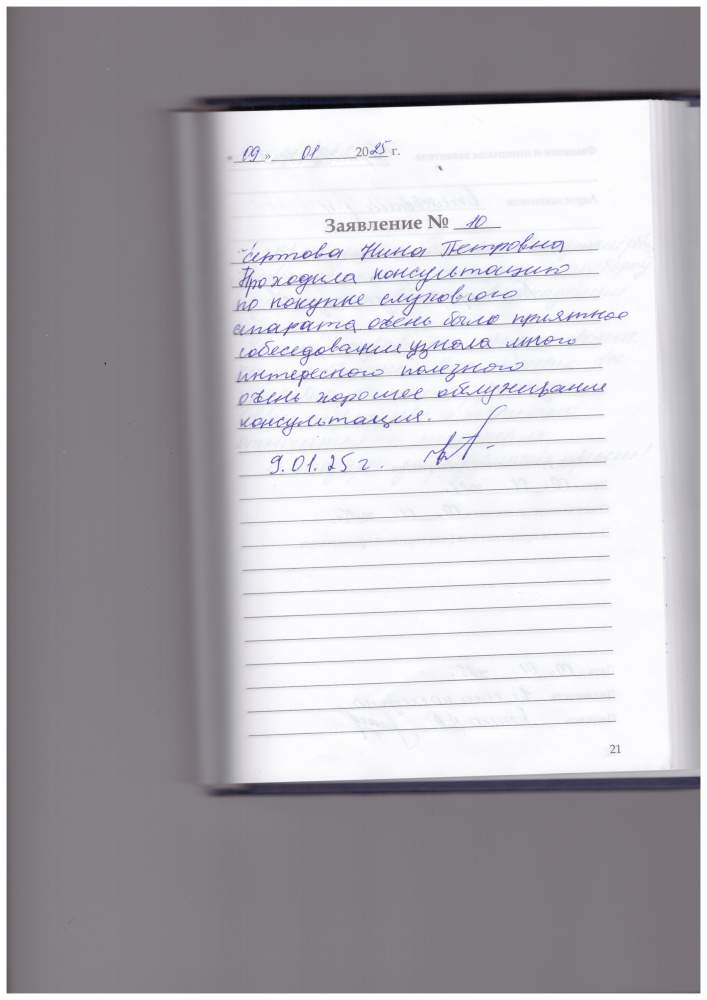 « 09 » 01 2025 г.
Заявление № 10
Нина Петровна
Проходила консультацию
по покупке слухового
аппарата очень было приятное
собеседование узнала много
интересного полезного
очень хорошее обслуживание
консультация.
9.01.25 г.
21